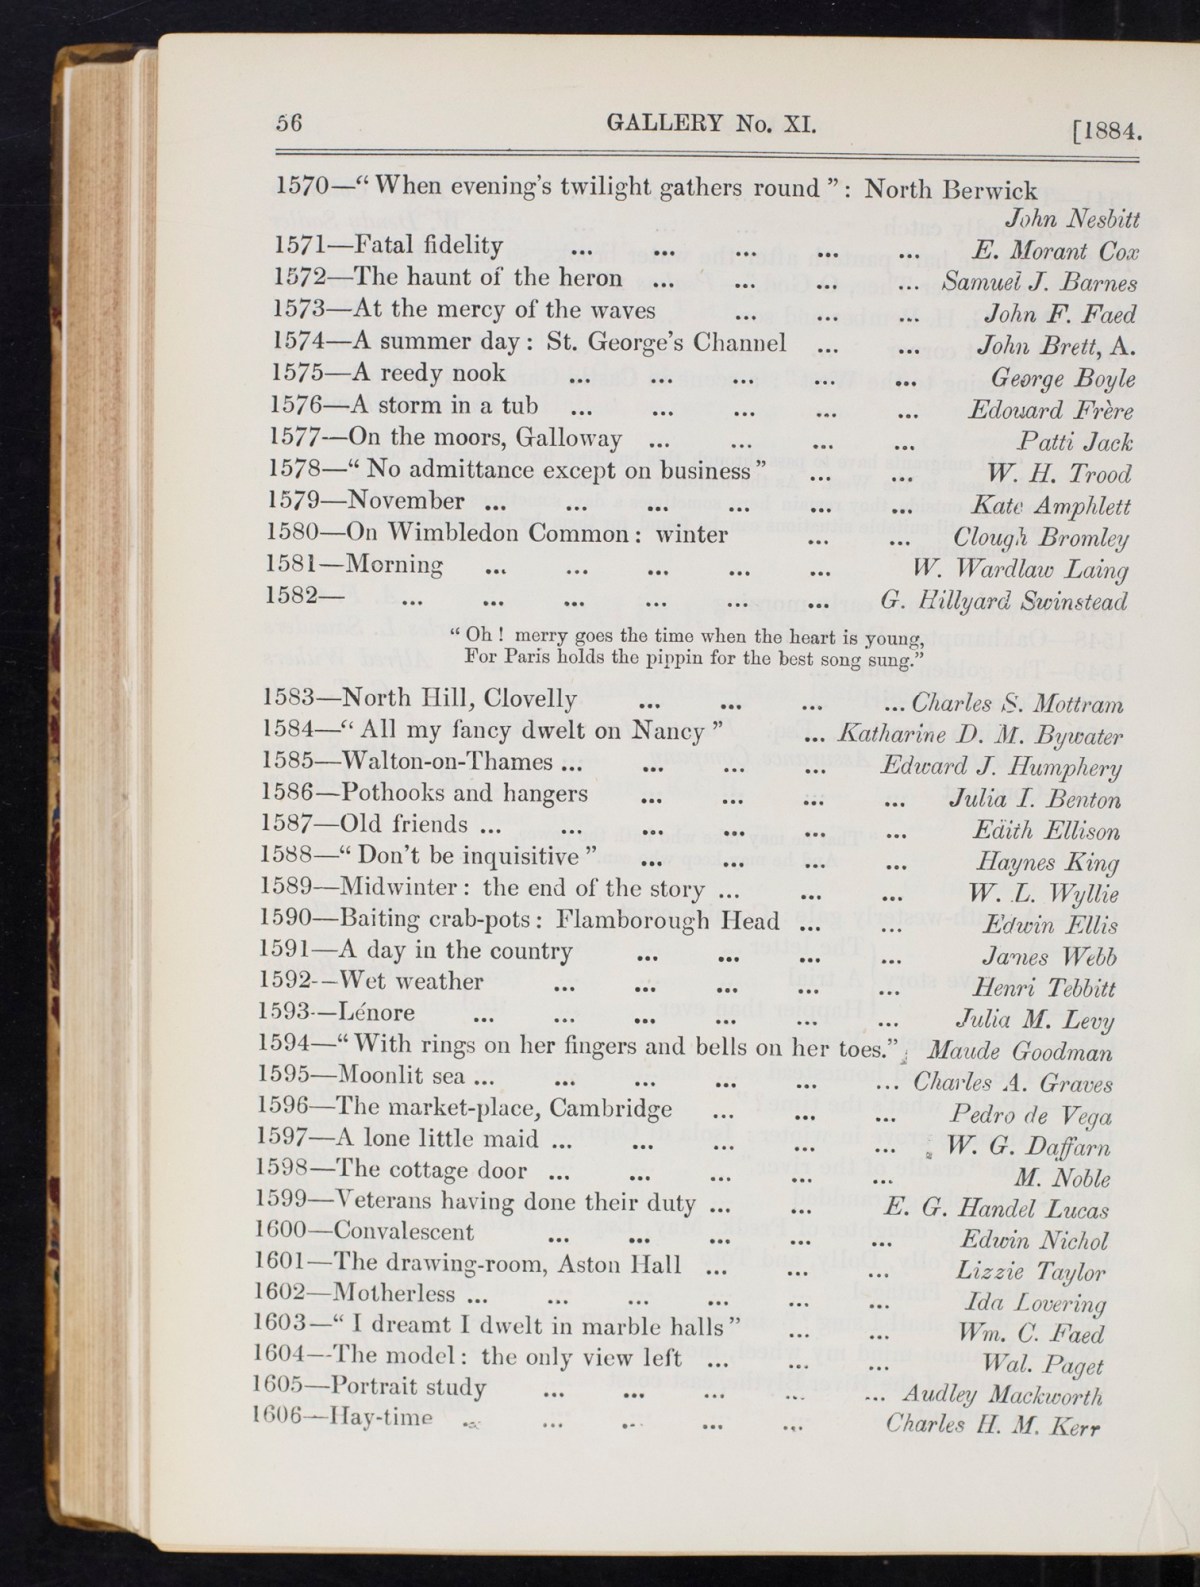 56 GALLERY No. XI. [1884.
1570—“ When evening’s twilight gathers round ” : North Berwick
John Nesbitt
1571—Fatal fidelity ... ... ... ... ... E. Morant Cox
1572—The haunt of the heron ... ... ... ... Samuel J. Barnes
1573—At the mercy of the waves ... ... ... John F. Faed
1574—A summer day : St. George’s Channel ... ... John Brett, A.
1575—A reedy nook ... ... ... ... ... George Boyle
1576—A storm in a tub ... ... ... ... ... Edouard Frère
1577—On the moors, Galloway ... ... ... ... Patti Jack
1578—“ No admittance except on business ” ... ... W. H. Trood
1579—November ... ... ... ... ... ... Kate Amphlett
1580—On Wimbledon Common : winter ... ... Clough Bromley
1581—Morning ... ... ... ... ... W. Wardlaw Laing
1582— ... ... ... ... ... ... G. Hillyard Swinstead
“ Oh ! merry goes the time when the heart is young,
For Paris holds the pippin for the best song sung.”
1583—North Hill, Clovelly ... ... ... ... Charles S. Mottram
1584—“ All my fancy dwelt on Nancy ” ... Katharine D. M. Bywater
1585—Walton-on-Thames ... ... ... ... Edward J. Humphery
1586—Pothooks and hangers ... ... ... ... Julia I. Benton
1587—Old friends ... ... ... ... ... ... Edith Ellison
1588—“ Don’t be inquisitive ” ... ... ... ... Haynes King
1589—Midwinter : the end of the story ... ... ... W. L. Wyllie
1590—Baiting crab-pots : Flamborough Head ... ... Edwin Ellis
1591—A day in the country ... ... ... ... James Webb
1592—Wet weather ... ... ... ... ... Henri Tebbitt
1593—Lénore ... ... ... ... ... ... Julia M. Levy
1594—“ With rings on her fingers and bells on her toes.” Maude Goodman
1595—Moonlit sea ... ... ... ... ... ... Charles A. Graves
1596—The market-place, Cambridge ... ... ... Pedro de Vega
1597—A lone little maid ... ... ... ... ... W. G. Daffarn
1598—The cottage door ... ... ... ... ... M. Noble
1599—Veterans having done their duty ... ... E. G. Handel Lucas
1600—Convalescent ... ... ... ... ... Edwin Nichol
1601—The drawing-room, Aston Hall ... ... ... Lizzie Taylor
1602—Motherless ... ... ... ... ... ... Ida Lovering
1603—“ I dreamt I dwelt in marble halls ” ... ... Wm. C. Faed
1604—The model : the only view left ... ... ... Wal. Paget
1605—Portrait study ... ... ... ... ... Audley Mackworth
1606—Hay-time ... ... ... ... ... Charles H. M. Kerr